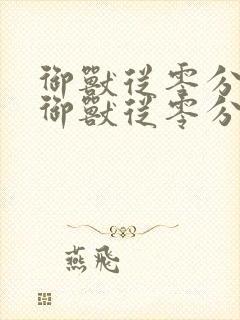 御獸從零分
御獸從零分
燕飛